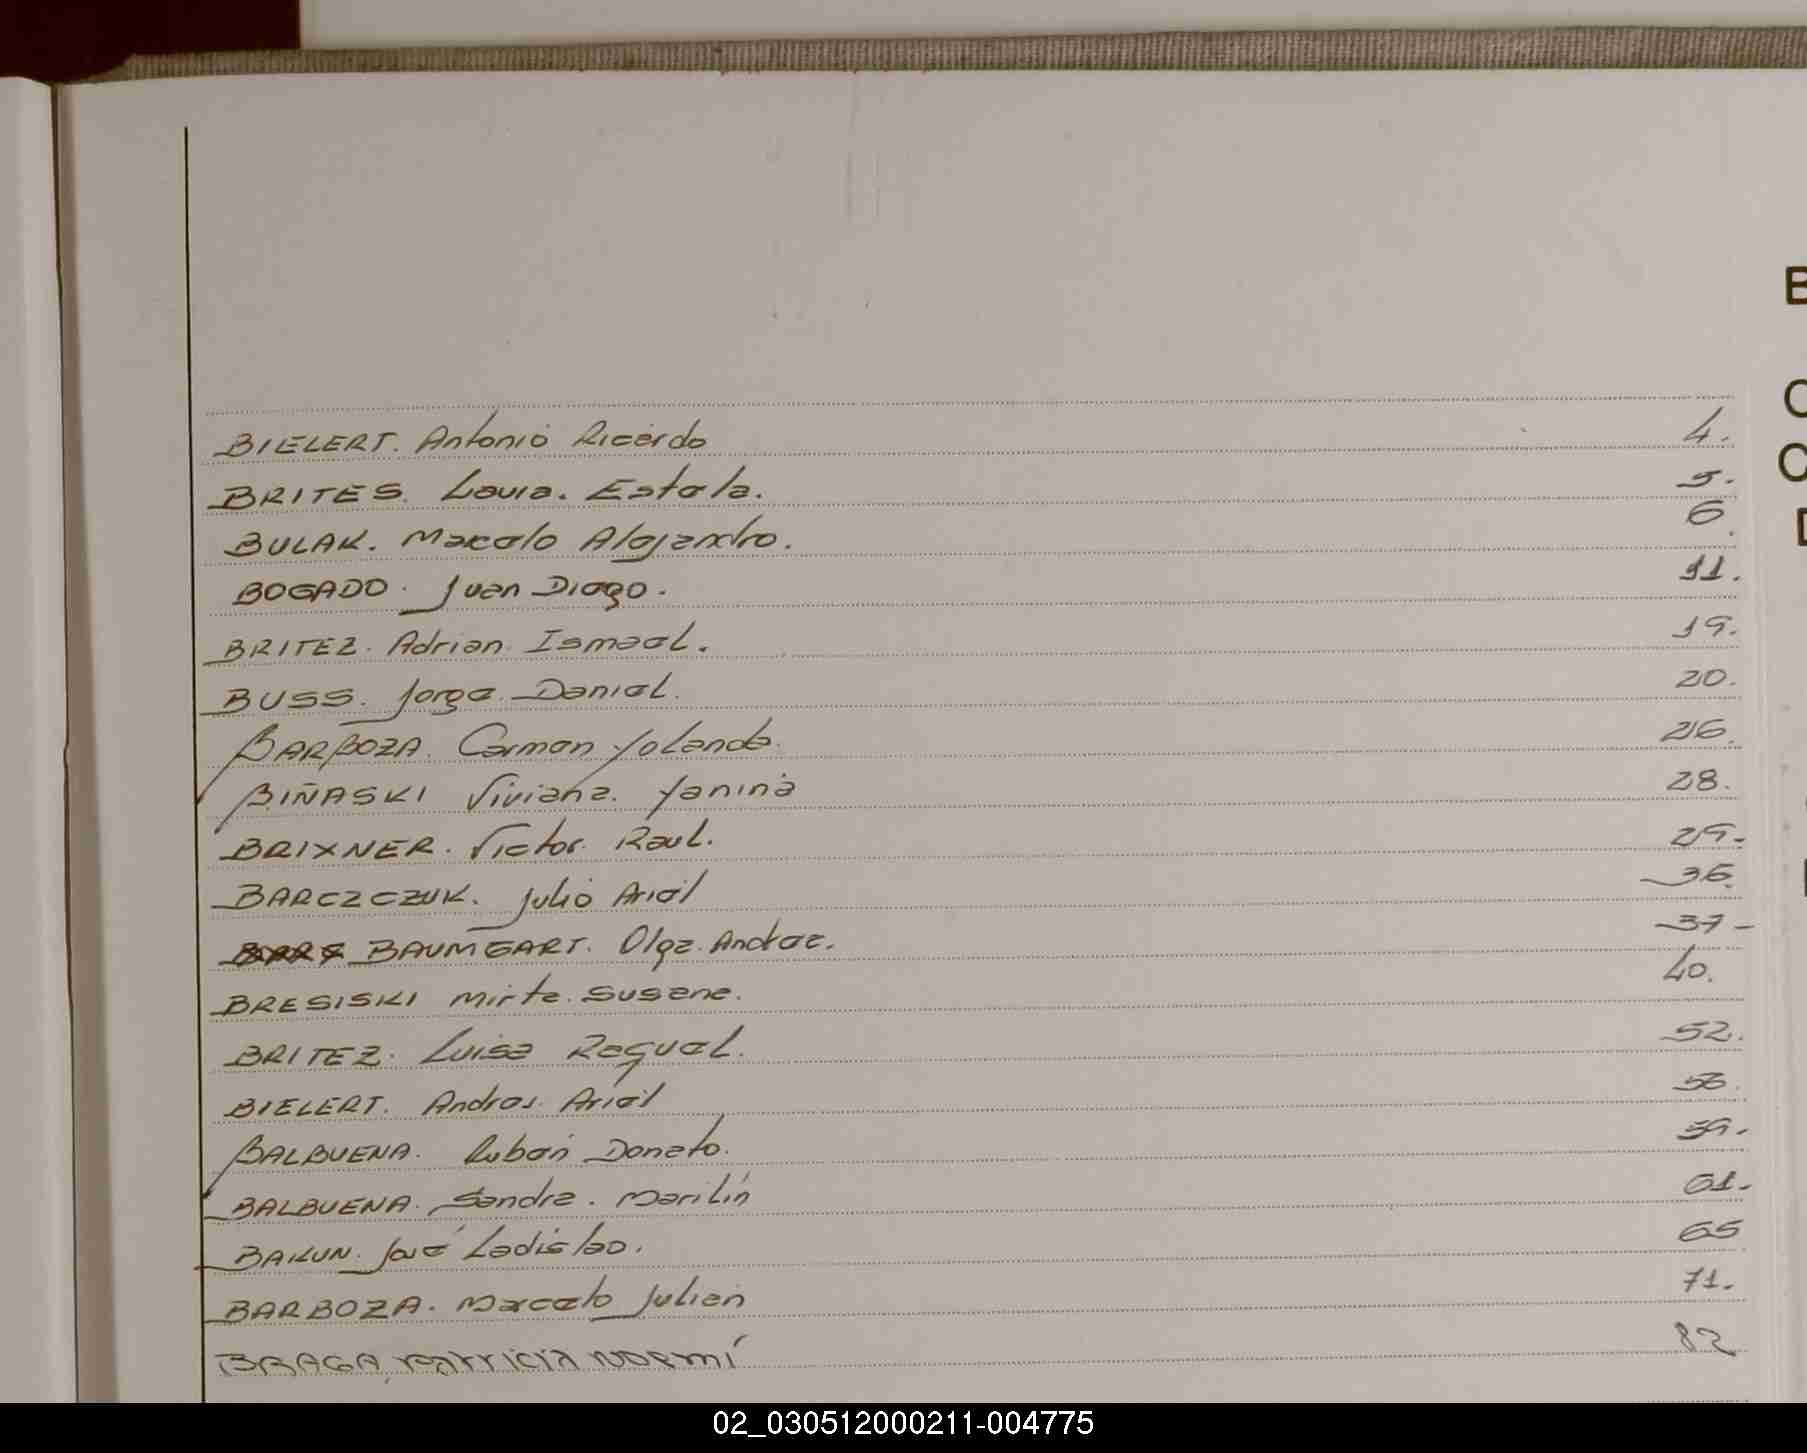 BIELERT. Antonio Ricardo 4.
BRITES. Laura. Estela. 5.
BULAK. Marcelo Alejandro. 6.
BOGADO. Juan Diego. 11.
BRITEZ. Adrian. Ismael. 19.
BUSS. Jorge. Daniel. 20.
BARBOZA. Carmen Yolanda. 26.
BIÑASKI Viviana. Yanina 28.
BRIXNER. Victor. Raul. 29.
BARCZCZUK. Julio Ariel 36.
BAUMGART. Olga. Andrea. 37-
BRESISKI Mirta. Susana. 40.
BRITEZ. Luisa Raquel. 52.
BIELERT. Andres. Ariel
BALBUENA. Rubén Donato. 59.
BALBUENA. Sandra. Marilín 61.
BAKUN. José Ladislao. 65
BARBOZA. Marcelo Julian 71.
BRAGA, Patricia Noemí 82
B
C
C
D
02_030512000211-004775